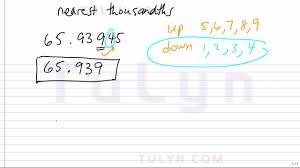 nearest thousandths
up 5,6,7,8,9
65.93945
down 1,2,3,4
65.939
TuLyn
TULYN.COM